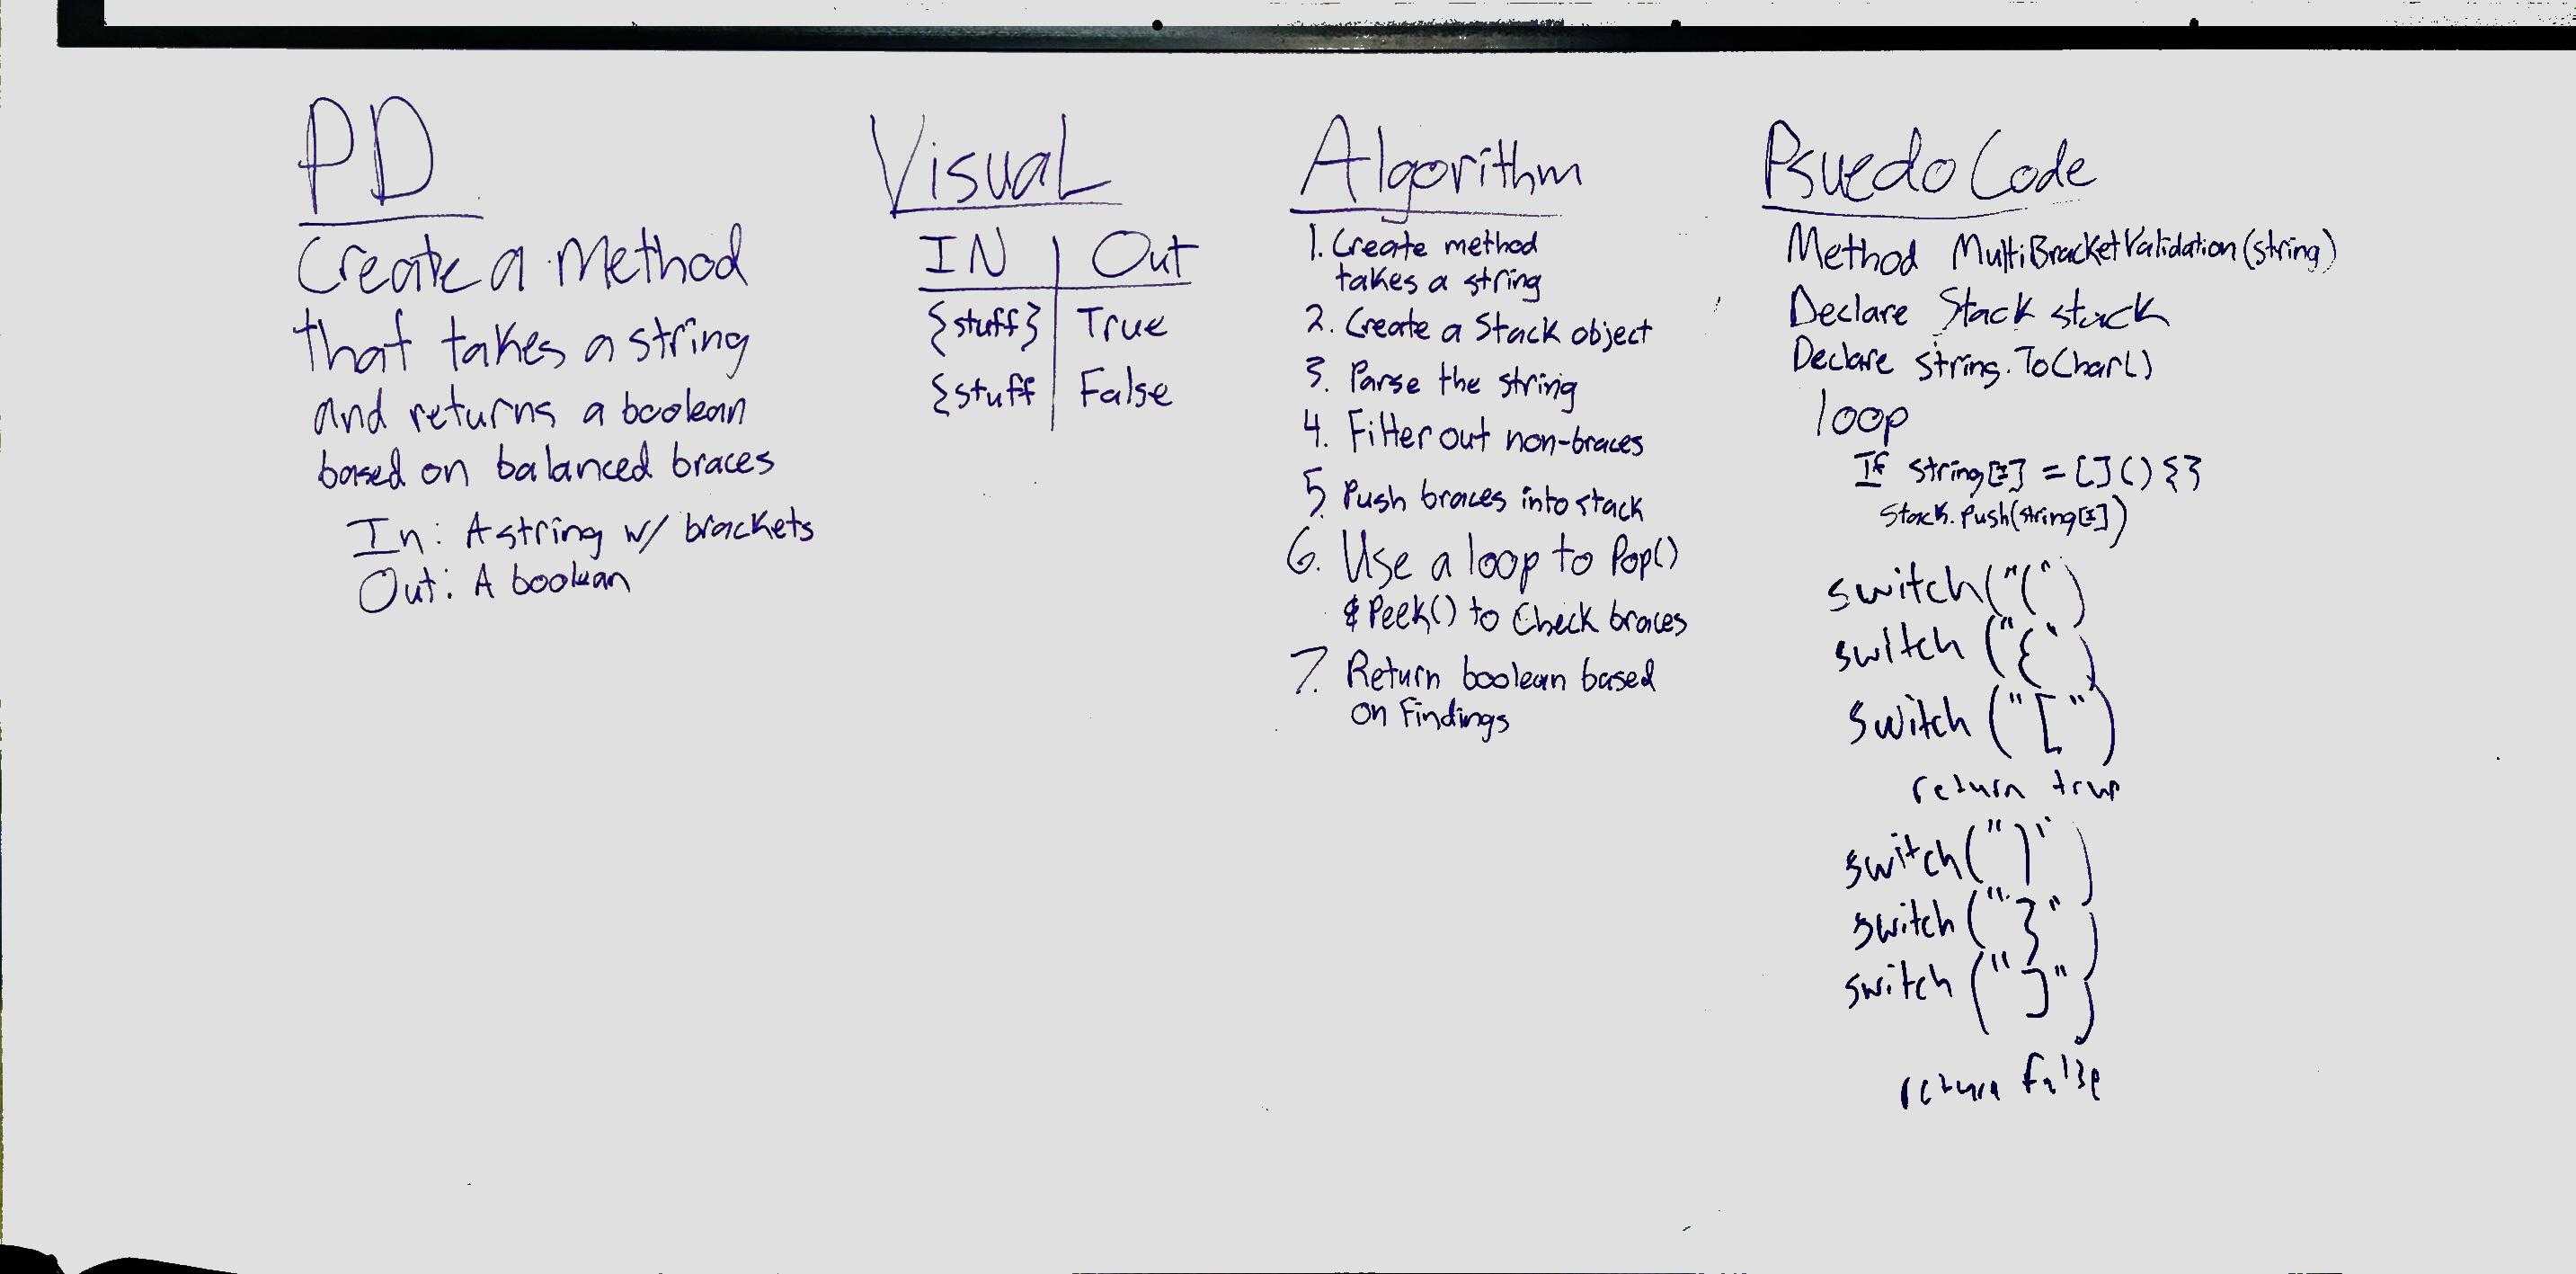 PD
Create a Method
that takes a string
and returns a boolean
based on balanced braces
In: A string w/ brackets
Out: A boolean
Visual
IN | Out
{stuff} | True
{stuff | False
Algorithm
1. Create method
takes a string
2. Create a Stack object
3. Parse the string
4. Filter out non-braces
5. Push braces into stack
6. Use a loop to Pop()
& Peek() to Check braces
7. Return boolean based
on Findings
Psuedo Code
Method MultiBracketValidation(string)
Declare Stack stack
Declare string.ToChar()
loop
If string[I] = []() {}
Stack.Push(string[I])
switch("(")
switch ("{")
switch ("[")
return true
switch(")")
switch ("}")
switch ("]")
return false